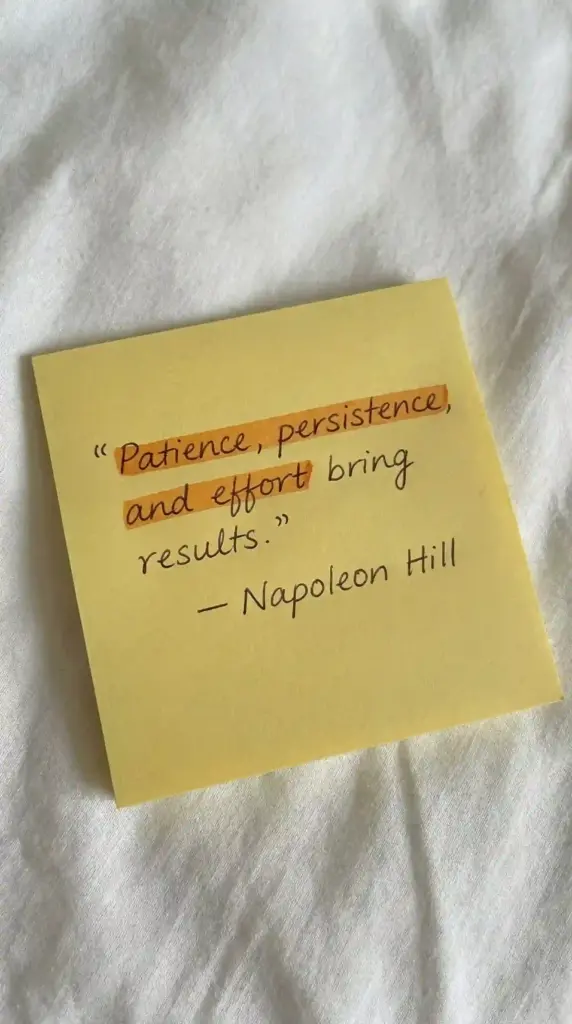 “Patience, persistence,
and effort bring
results.”
— Napoleon Hill